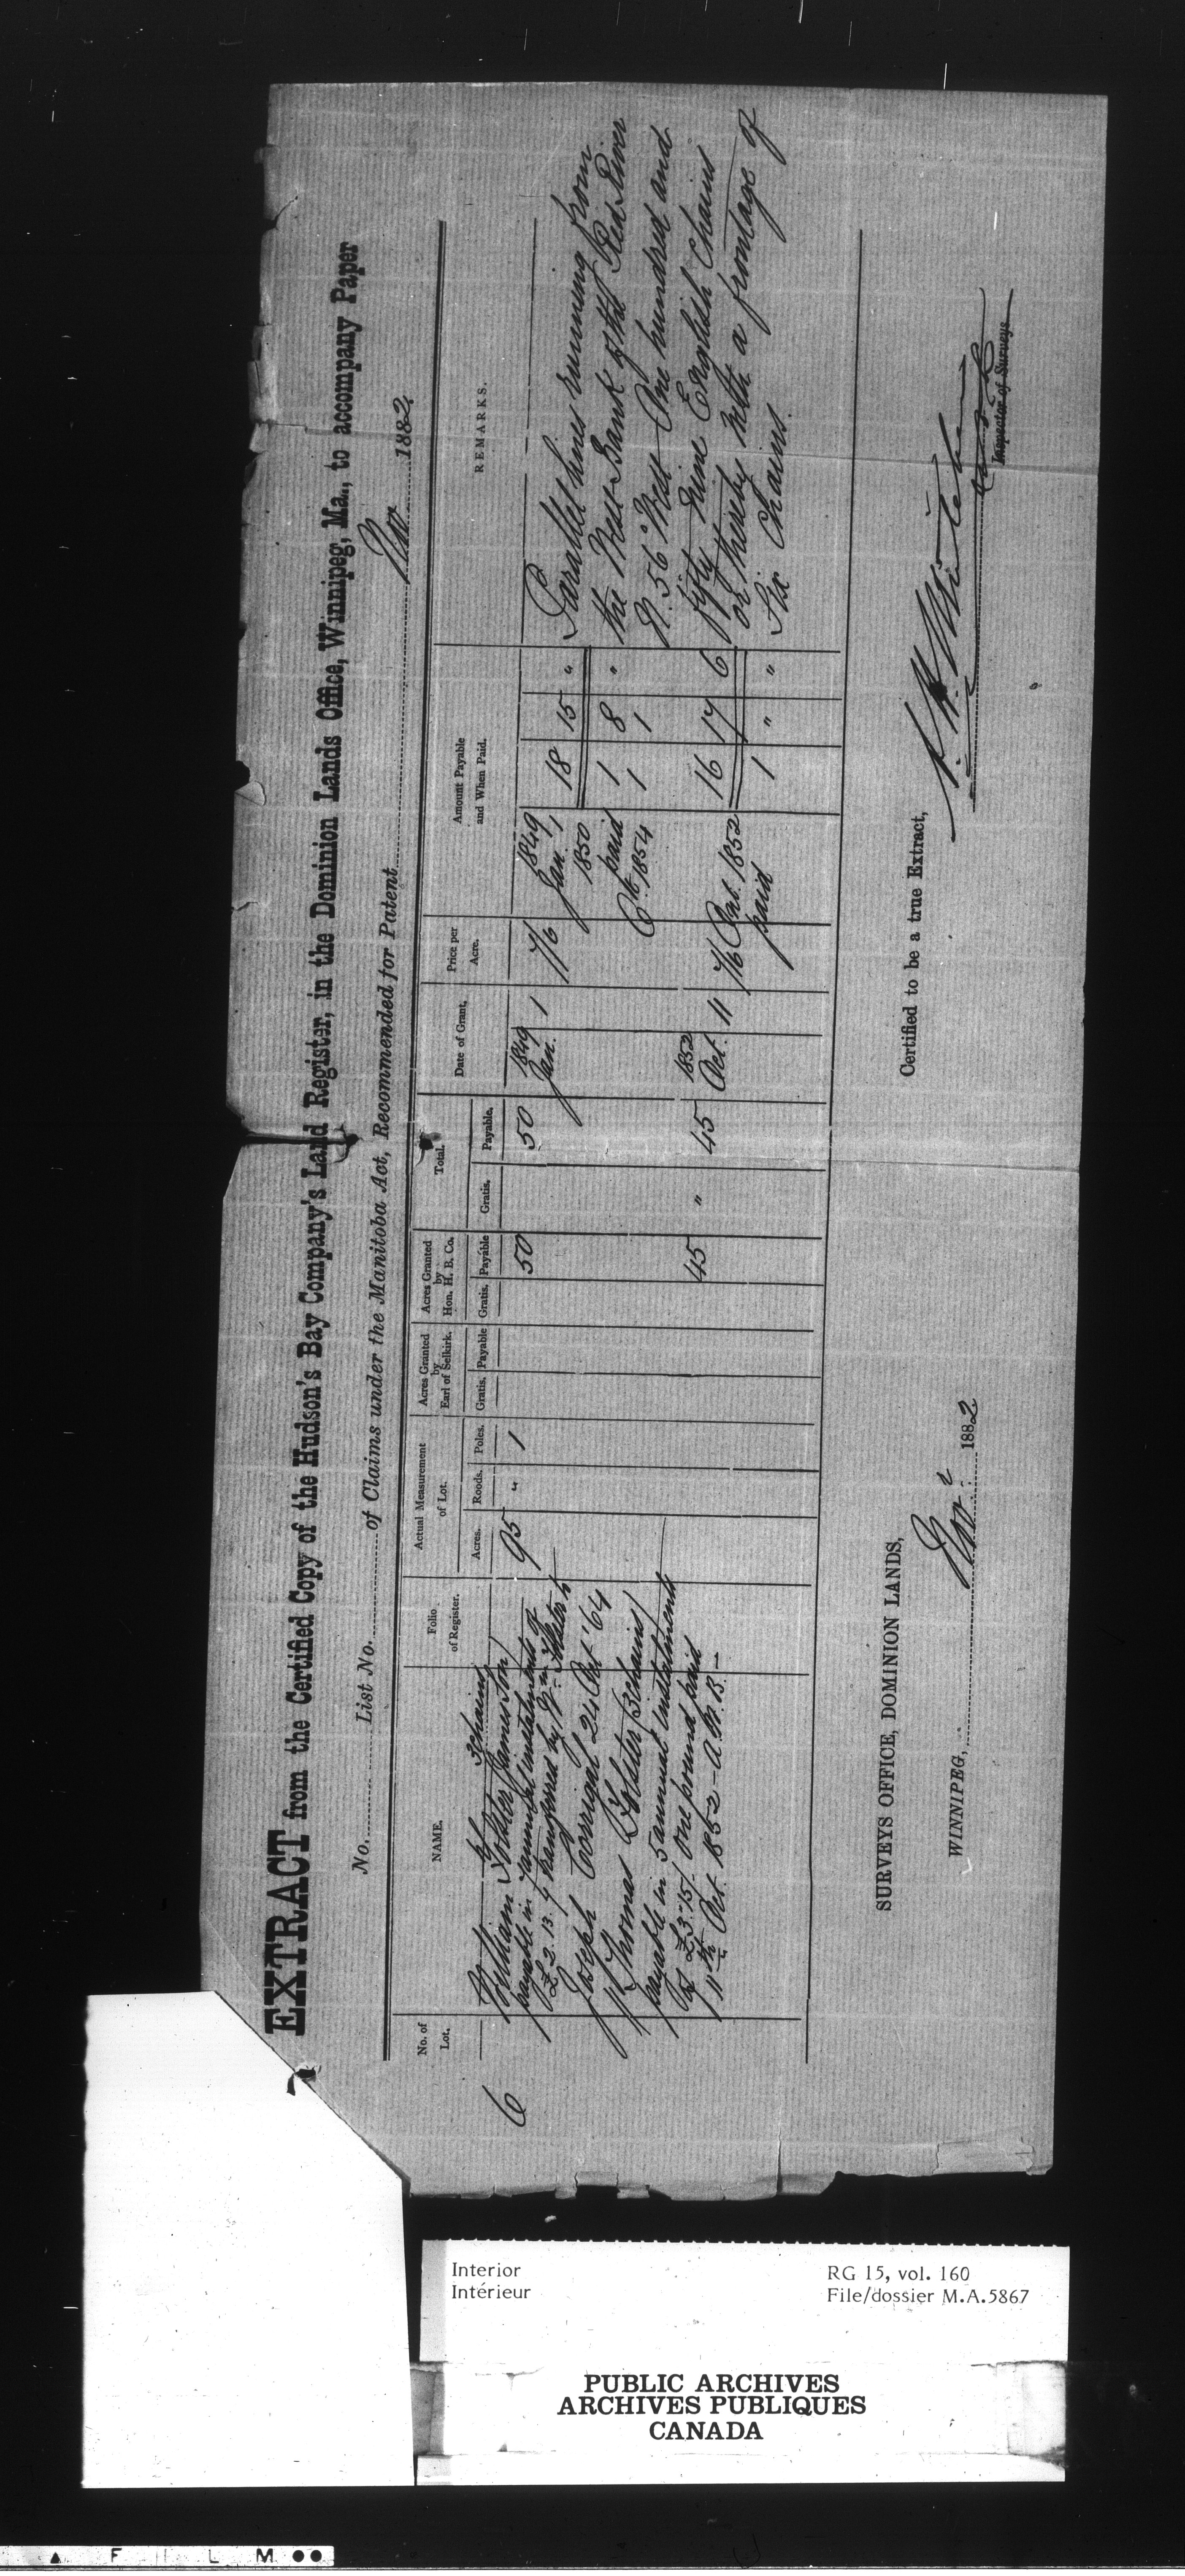 EXTRACT from the Certified Copy of the Hudson's Bay Company's Land Register, in the Dominion Lands Office, Winnipeg, Ma., to accompany Paper
No. List No. of Claims under the Manitoba Act, Recommended for Patent Nov 1882
No. of Lot.
NAME.
Folio of Register.
Actual Measurement of Lot.
Acres. Roods. Poles.
Acres Granted by Earl of Selkirk.
Gratis. Payable
Acres Granted by Hon. H. B. Co.
Gratis. Payable
Total.
Gratis. Payable.
Date of Grant.
Price per Acre.
Amount Payable and When Paid.
REMARKS.
6
3 chains
William (James' Son)
payable in annual instalments of
£2.13.9 transferred by Wm to
Joseph Corrigal 24 Oct '64
Thomas (3 chains)
payable in 5 annual instalments
of £3.15/. One pound paid
11th Oct. 1852 – A.W.B. –
95 " 1
50
50
1849
Jan. 1
7/6
1849
Jan. 1 18 15 "
1850
paid 1 8 "
Oct. 1854 1 1
45
" 45
1852
Oct. 11
7/6
Oct. 1852 16 17 6
paid 1 " "
Parallel lines running from
the West Bank of the Red River
N. 56° West One hundred and
fifty nine English Chains
or thereby with a frontage of
Six Chains.
SURVEYS OFFICE, DOMINION LANDS,
WINNIPEG, Nov. 2 1882
Certified to be a true Extract,
Inspector of Surveys
Interior
Intérieur
RG 15, vol. 160
File/dossier M.A.5867
PUBLIC ARCHIVES
ARCHIVES PUBLIQUES
CANADA
F I L M